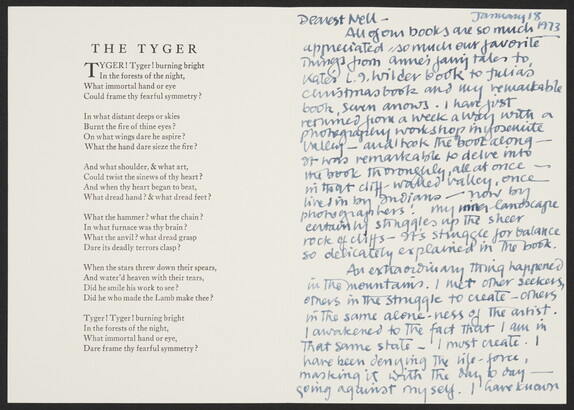 THE TYGER
TYGER! Tyger! burning bright
In the forests of the night,
What immortal hand or eye
Could frame thy fearful symmetry?
In what distant deeps or skies
Burnt the fire of thine eyes?
On what wings dare he aspire?
What the hand dare sieze the fire?
And what shoulder, & what art,
Could twist the sinews of thy heart?
And when thy heart began to beat,
What dread hand? & what dread feet?
What the hammer? what the chain?
In what furnace was thy brain?
What the anvil? what dread grasp
Dare its deadly terrors clasp?
When the stars threw down their spears,
And water'd heaven with their tears,
Did he smile his work to see?
Did he who made the Lamb make thee?
Tyger! Tyger! burning bright
In the forests of the night,
What immortal hand or eye,
Dare frame thy fearful symmetry?
January 18
1973
Dearest Nell -
All of our books are so much
appreciated - so much our favorite
things from Anne's fairy tales to,
Kate's L.I. Wilder book to Julia's
Christmas book and my remarkable
book, Seven Arrows. I have just
returned from a week away with a
photography workshop in Yosemite
Valley - and took the book along -
It was remarkable to delve into
the book thoroughly, all at once -
in that cliff-walled valley, once
lived in by Indians - now by
photographers! My inner landscape
certainly struggles up the sheer
rock of cliffs - it's struggle for balance
so delicately explained in the book.
An extraordinary thing happened
in the mountains. I met other seekers,
others in the struggle to create - others
in the same alone-ness of the artist.
I awakened to the fact that I am in
that same state - I must create. I
have been denying the life-force,
masking it with the day to day -
going against myself. I have known